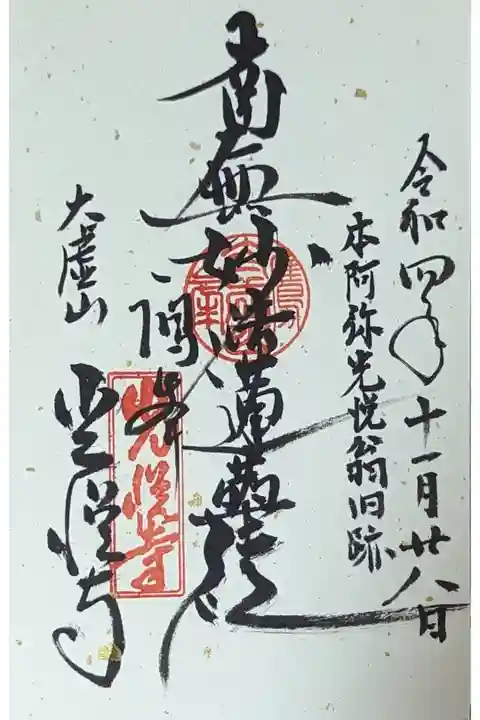 令和四年十一月廿八日
本阿弥光悦翁旧跡
南無妙法蓮華経
大虚山
光悦寺
光悦寺